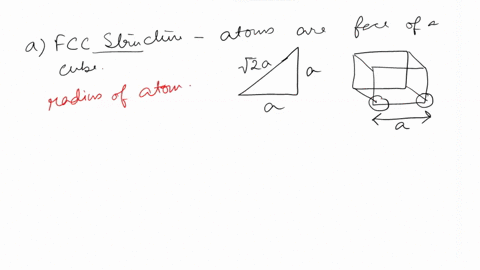 a) FCC Structure - atoms are face of a
cube.
radius of atom.
√2a
a
a
a